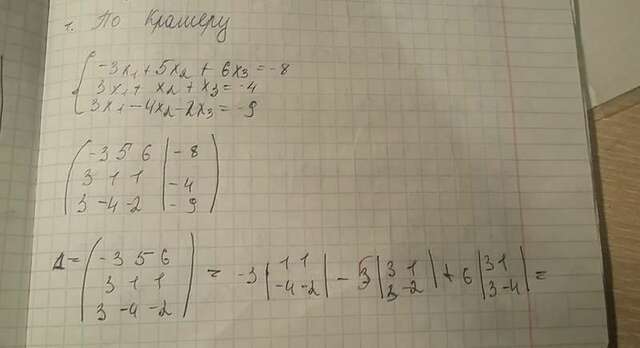 1. По Крамеру
-3x₁+5x₂+6x₃=-8
3x₁+x₂+x₃=-4
3x₁-4x₂-2x₃=-9
-3 5 6 | -8
3 1 1 | -4
3 -4 -2 | -9
Δ = ( -3 5 6 ) = -3 | 1 1 | - 5 | 3 1 | + 6 | 3 1 | =
3 1 1 -4 -2 3 -2 3 -4
3 -4 -2